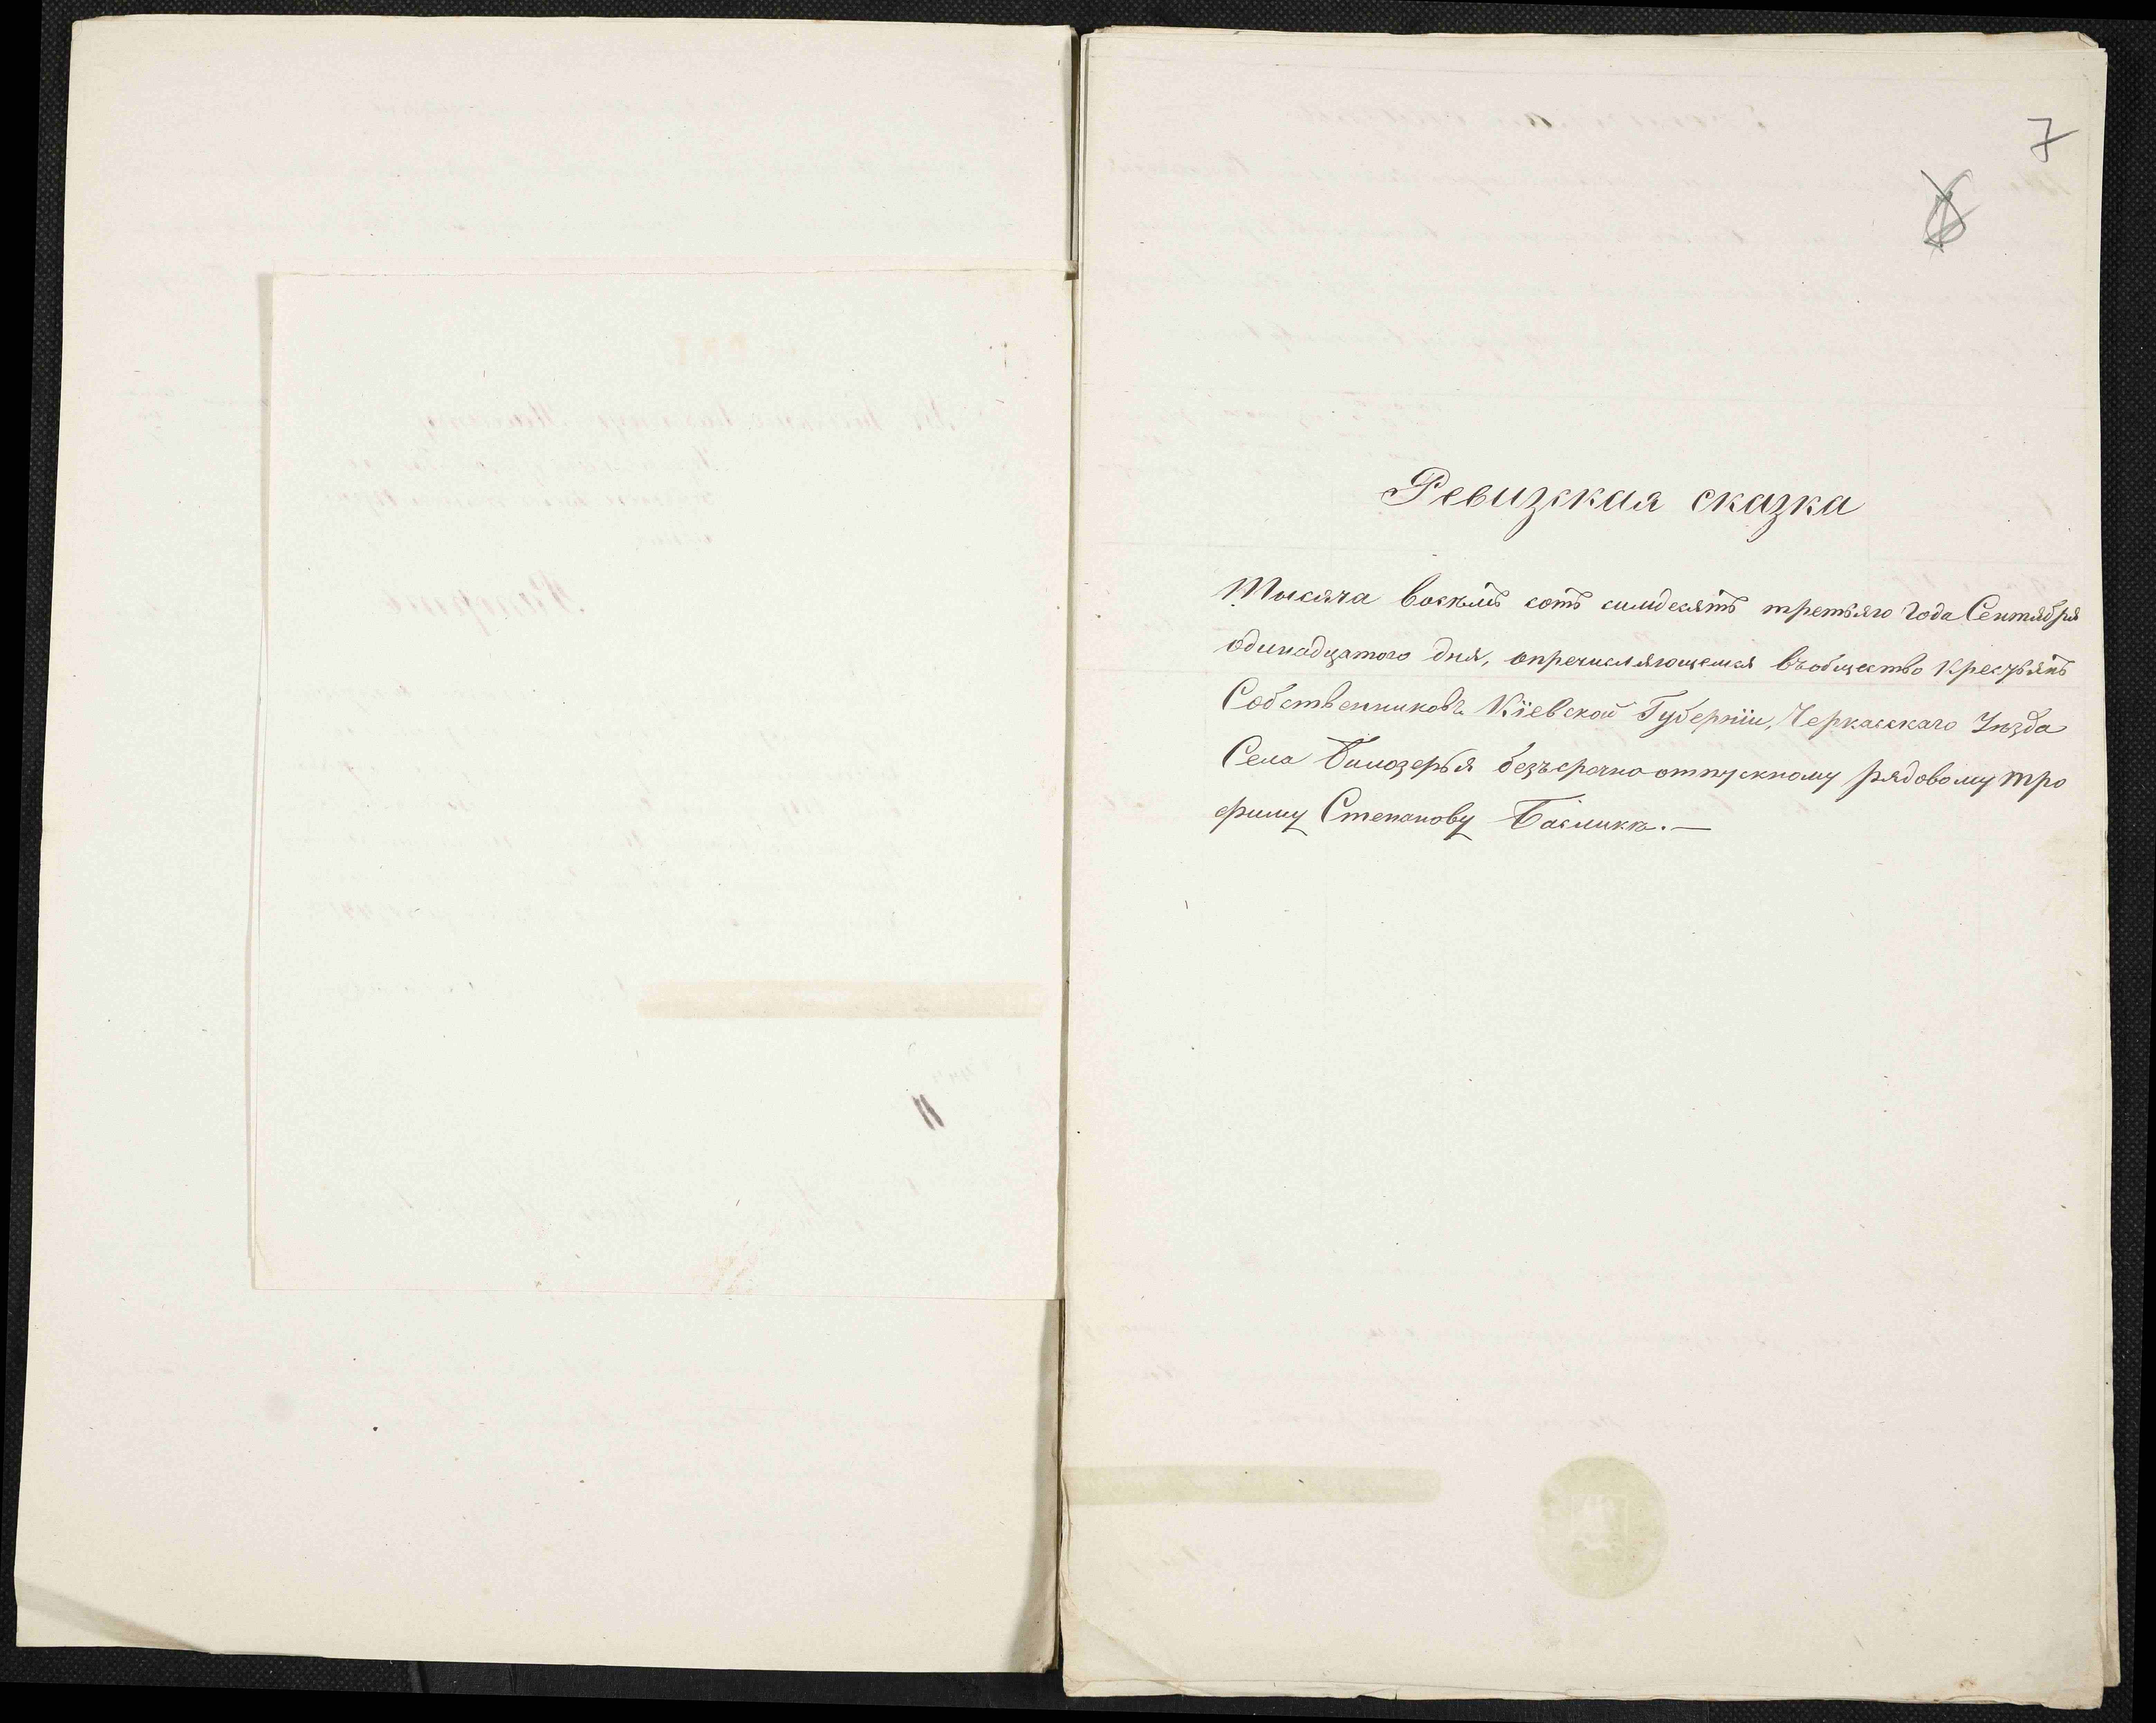 7
Ревизская сказка
Тысяча восемь сотъ семдесятъ третьяго года Сентября
одинадцатого дня, опречисляющемся въ общество крестьянъ
Собственниковъ Кіевской Губерніи, Черкасскаго Уезда
Села Билозерья безъсрочно отпускному рядовому Тро
фиму Степанову Баклике.—